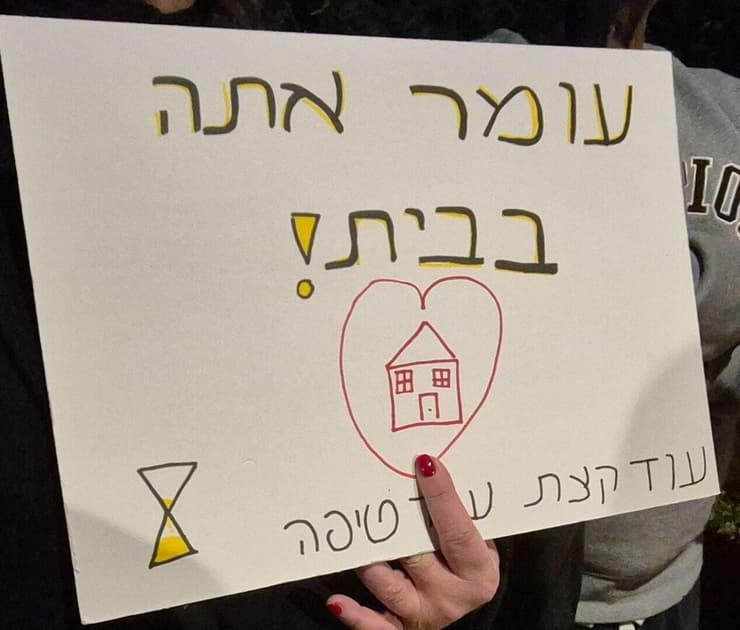 עומר אתה
בבית!
עוד קצת עוד טיפה